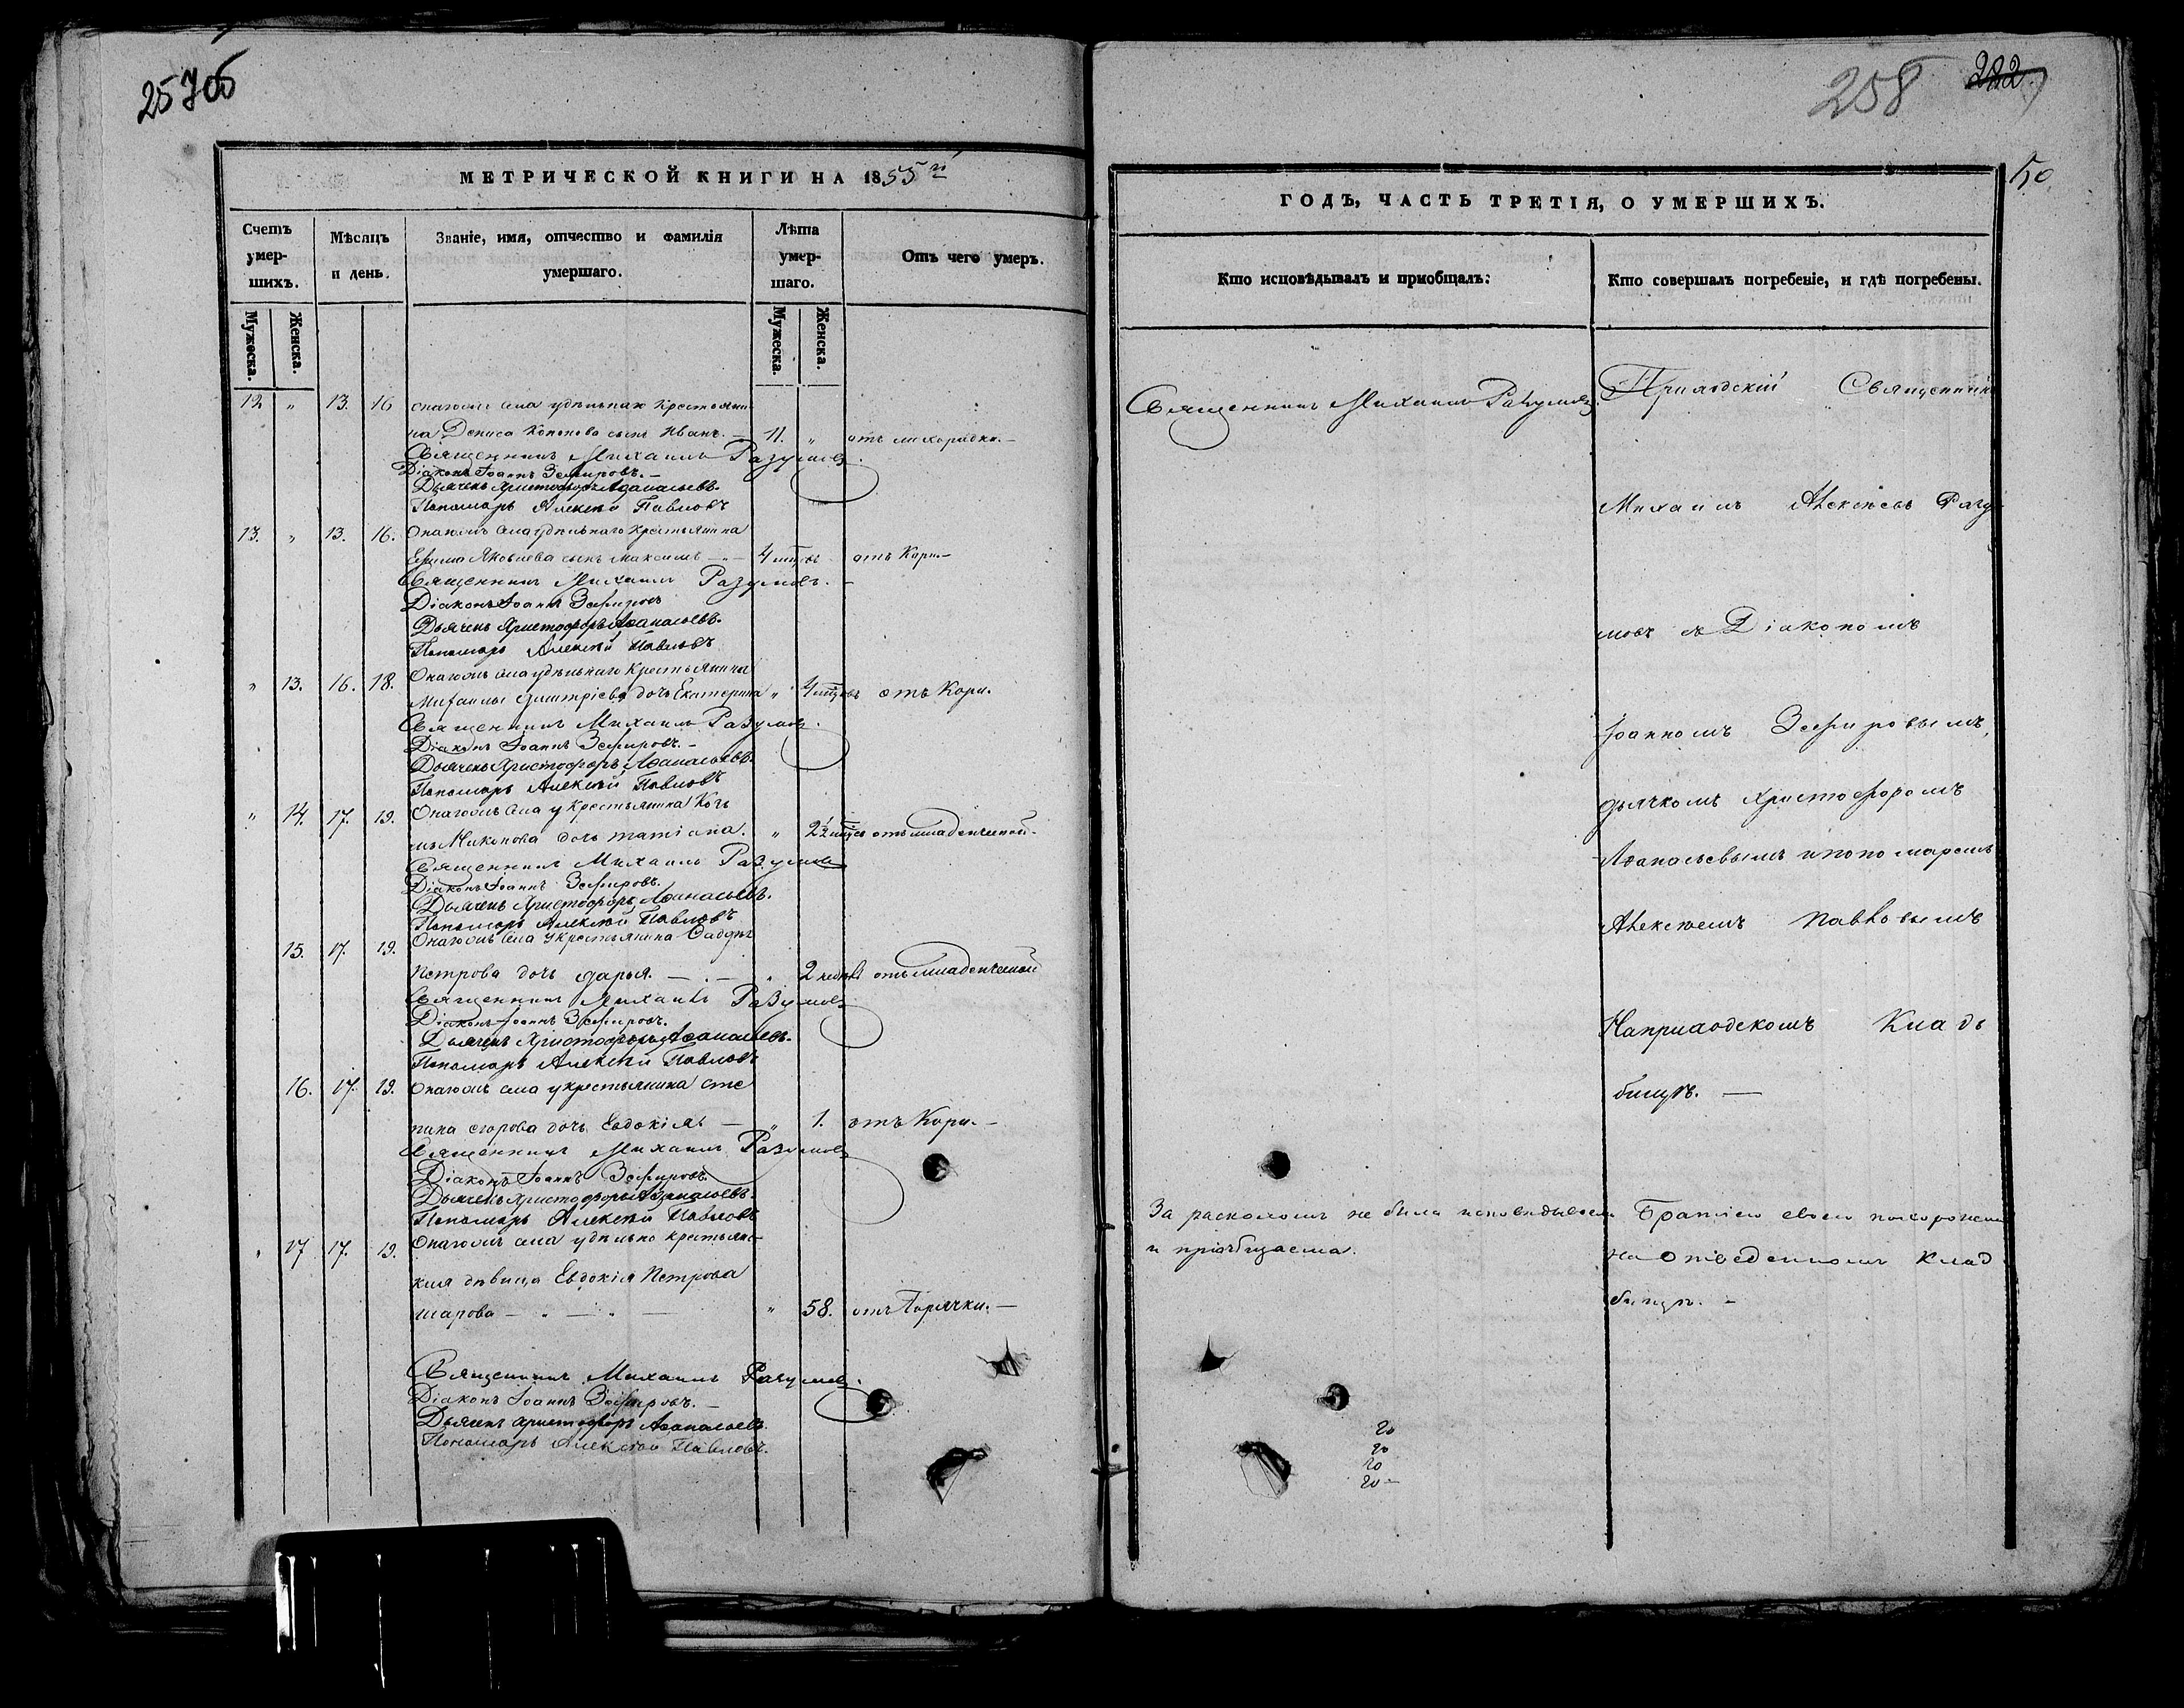 257об
МЕТРИЧЕСКОЙ КНИГИ НА 1855й
Счетъ умер-шихъ.
Мѣсяцъ и день.
Званіе, имя, отчество и фамилія умершаго.
Лѣта умер-шаго.
Отъ чего умеръ.
Мужеска.
Женска.
Мужеска.
Женска.
12 " 13. 16
села удѣльнаго крестьяни
на Дениса Кононова сынъ Иванъ. 11. " отъ лихорадки.
Священникъ Михаилъ Разумовъ
Діаконъ Іоаннъ Зефировъ.
Дьячекъ Христофоръ Аѳанасьевъ.
Пономарь Алексѣй Павловъ
13. " 13. 16. села удѣльнаго крестьянина
Ефима Яковлева сынъ Максимъ 4 отъ Кори.
Священникъ Михаилъ Разумовъ.
Діаконъ Іоаннъ Зефировъ
Дьячекъ Христофоръ Аѳанасьевъ.
Пономарь Алексѣй Павловъ
" 13. 16. 18. села удѣльнаго крестьянина
Михаилы Дмитріева дочь Екатерина " 4 отъ Кори.
Священникъ Михаилъ Разумовъ.
Діаконъ Іоаннъ Зефировъ.
Дьячекъ Христофоръ Аѳанасьевъ.
Пономарь Алексѣй Павловъ
" 14. 17. 19. села у крестьянина
Никонова дочь татіана. " 2½ отъ младенческой
Священникъ Михаилъ Разумовъ
Діаконъ Іоаннъ Зефировъ.
Дьячекъ Христофоръ Аѳанасьевъ.
Пономарь Алексѣй Павловъ
15. 17. 19. села у крестьянина Фаддѣя
Петрова дочь дарья. " 2 недѣль отъ младенческой
Священникъ Михаилъ Разумовъ
Діаконъ Іоаннъ Зефировъ.
Дьячекъ Христофоръ Аѳанасьевъ.
Пономарь Алексѣй Павловъ
16. 17. 19. села у крестьянина сте
пана егорова дочь Евдокія " 1. отъ Кори.
Священникъ Михаилъ Разумовъ
Діаконъ Іоаннъ Зефировъ
Дьячекъ Христофоръ Аѳанасьевъ.
Пономарь Алексѣй Павловъ
" 17 17. 19. села удѣльно крестьянс
кая дѣвица Евдокія Петрова
шарова " 58. отъ Горячки.
Священникъ Михаилъ Разумовъ.
Діаконъ Іоаннъ Зефировъ.
Дьячекъ Христофоръ Аѳанасьевъ.
Пономарь Алексѣй Павловъ.
258 282
50
ГОДЪ, ЧАСТЬ ТРЕТІЯ, О УМЕРШИХЪ.
Кто исповѣдывалъ и пріобщалъ:
Кто совершалъ погребеніе, и гдѣ погребены.
Священникъ Михаилъ Разумовъ.
Приходскій Священникъ
Михаилъ Алексѣевъ Разу
мовъ съ Діакономъ
Іоанномъ Зефировымъ,
дьячкомъ Христофоромъ
Аѳанасьевымъ и пономаремъ
Алексѣемъ Павловымъ
На приходскомъ Клад
бищѣ.
За расколомъ не была исповѣдываема
и пріобщаема.
Братіею своею похоронена
на отведенномъ Клад
бищѣ.
20
20
20
20